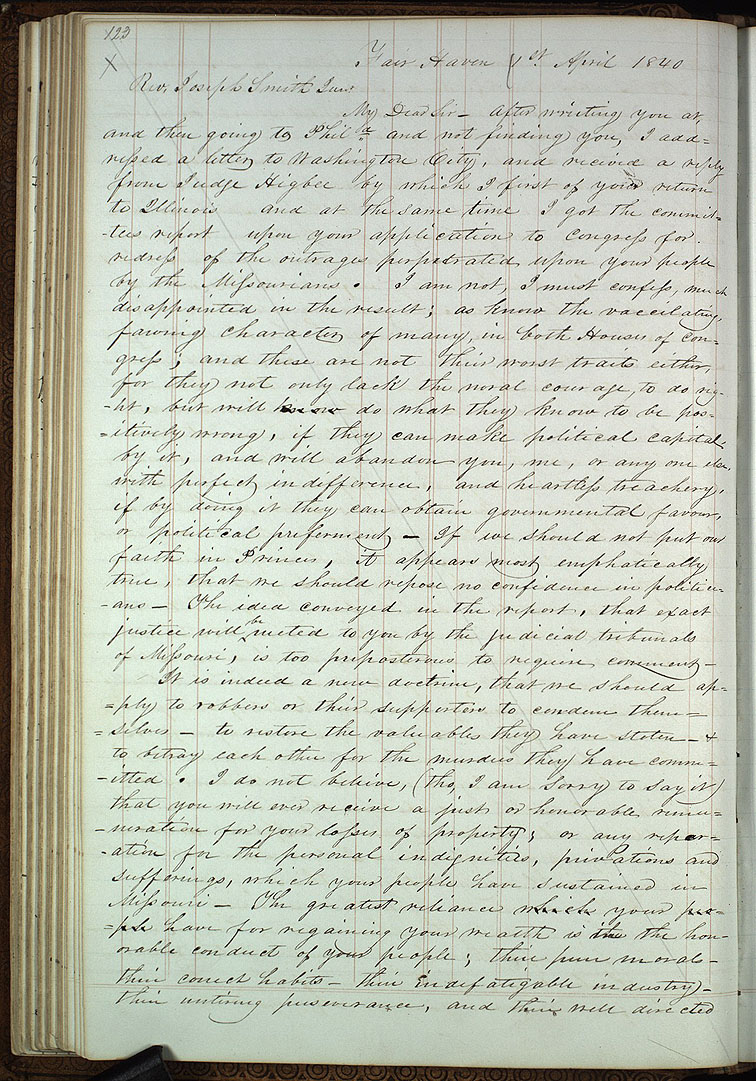 123
X
Fair Haven 1st April 1840
Rev. Joseph Smith Junr
My Dear Sir — after writing you at
and then going to Phila and not finding you, I add=
ressed a letter to Washington City, and recieved a reply
from Judge Higbee by which I first of your return
to Illinois and at the same time I got the commit=
-tees report upon your application to Congress for
redress of the outrages perpetrated upon your people
by the Missourians. I am not, I must confess, much
disappointed in the result; as know the vaccilating,
fawning character of many, in both Houses of Con-
gress; and these are not their worst traits either,
for they not only lack the moral courage, to do rig-
-ht, but will know do what they know to be pos-
=itively wrong, if they can make political capital
by it, and will abandon you, me, or any one else,
with perfect indifference, and heartless treachery,
if by doing it they can obtain governmental favour,
or political preferment — If we should not put our
faith in Princes, it appears most emphatically
true, that we should repose no confidence in politici-
-ans — The idea conveyed in the report, that exact
justice will be meted to you by the judicial tribunals
of Missouri, is too preposterous to require comment —
It is indeed a new doctrine, that we should ap-
=ply to robbers or their supporters to condem them=
=selves — to restore the valuables they have stolen — &
to betray each other for the murders they have comm-
-itted. I do not believe, (tho, I am sorry to say it)
that you will ever receive a just or honorable remu-
-neration for your losses of property; or any repar-
-ation for the personal indignities, privations and
sufferings, which your people have sustained in
Missouri — The greatest reliance which your peo-
-ple have for regaining your wealth is the the hon-
orable conduct of your people; their pure morals —
their correct habits — their indefatigable industry —
their untiring perseverance, and their well directed